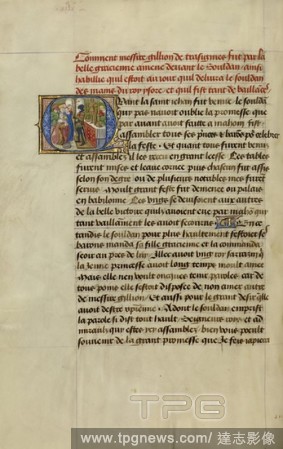 Comment messire gillion de trasignes fut par la
belle gracienne amene devant le souldan ainsi
habillie quil estoit au iour quil delivra le souldan
des mains du roy ysore et quil fist tant de vaillan
Quant la saint iehan fut venue le souldan
qui pas navoit oublie la promesse que
par avant avoit faitte a mahom fist
assembler tous ses
la feste Et quant furent venus
et assemblez il les receu en grant leesse Les tables
furent mises et lauue cornee puis chascun fut assis
selon son degre ou de plusieurs notables mes furent
servis Moult grant feste fut demenee ou palais
en babilonne Les ungs se devisoient aux autres
de la belle victoire quilz avoient eue par
tant vaillamment les avoit secourus En
tandis le souldan pour plus haultement festoier ses
barons manda sa fille gracienne et la commanda
seoir au pres de luy Illec avoit ung roy sarrasin
la jeune pensee avoit long temps moult amee
Mais elle nen voult oncques tenir parolle car de
tous pons elle estoit disposee de non amer autre
de messire gillion Et aussi pour le grant desir quelle
avoit destre xpienne Adont le souldan emprist
la parole si dist tout hault Seigneurs roys et ad
miraulx qui estes icy assemblez bien vous poeult
souvenir de la grant promesse que Je feis
TPG
www.tpgnews.com/達志影像